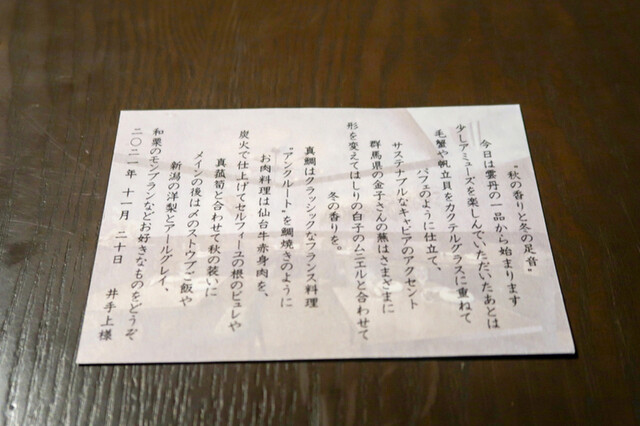 "秋の香りと冬の足音"
今日は雲丹の一品から始まります
少しアミューズを楽しんでいただいたあとは
毛蟹や帆立貝をカクテルグラスに重ねて
パフェのように仕立て、
サステナブルなキャビアのアクセント
群馬県の金子さんの蕪はさまざまに
形を変えてはしりの白子のムニエルと合わせて
冬の香りを。
真鯛はクラッシックなフランス料理
"アンクルート"を鯛焼きのように
お肉料理は仙台牛赤身肉を、
炭火で仕上げてセルフィーユの根のピュレや
真菰筍と合わせて秋の装いに
メインの後は〆のストウブご飯や
新潟の洋梨とアールグレイ、
和栗のモンブランなどお好きなものをどうぞ
二〇二一年 十一月 二十日 井手上様